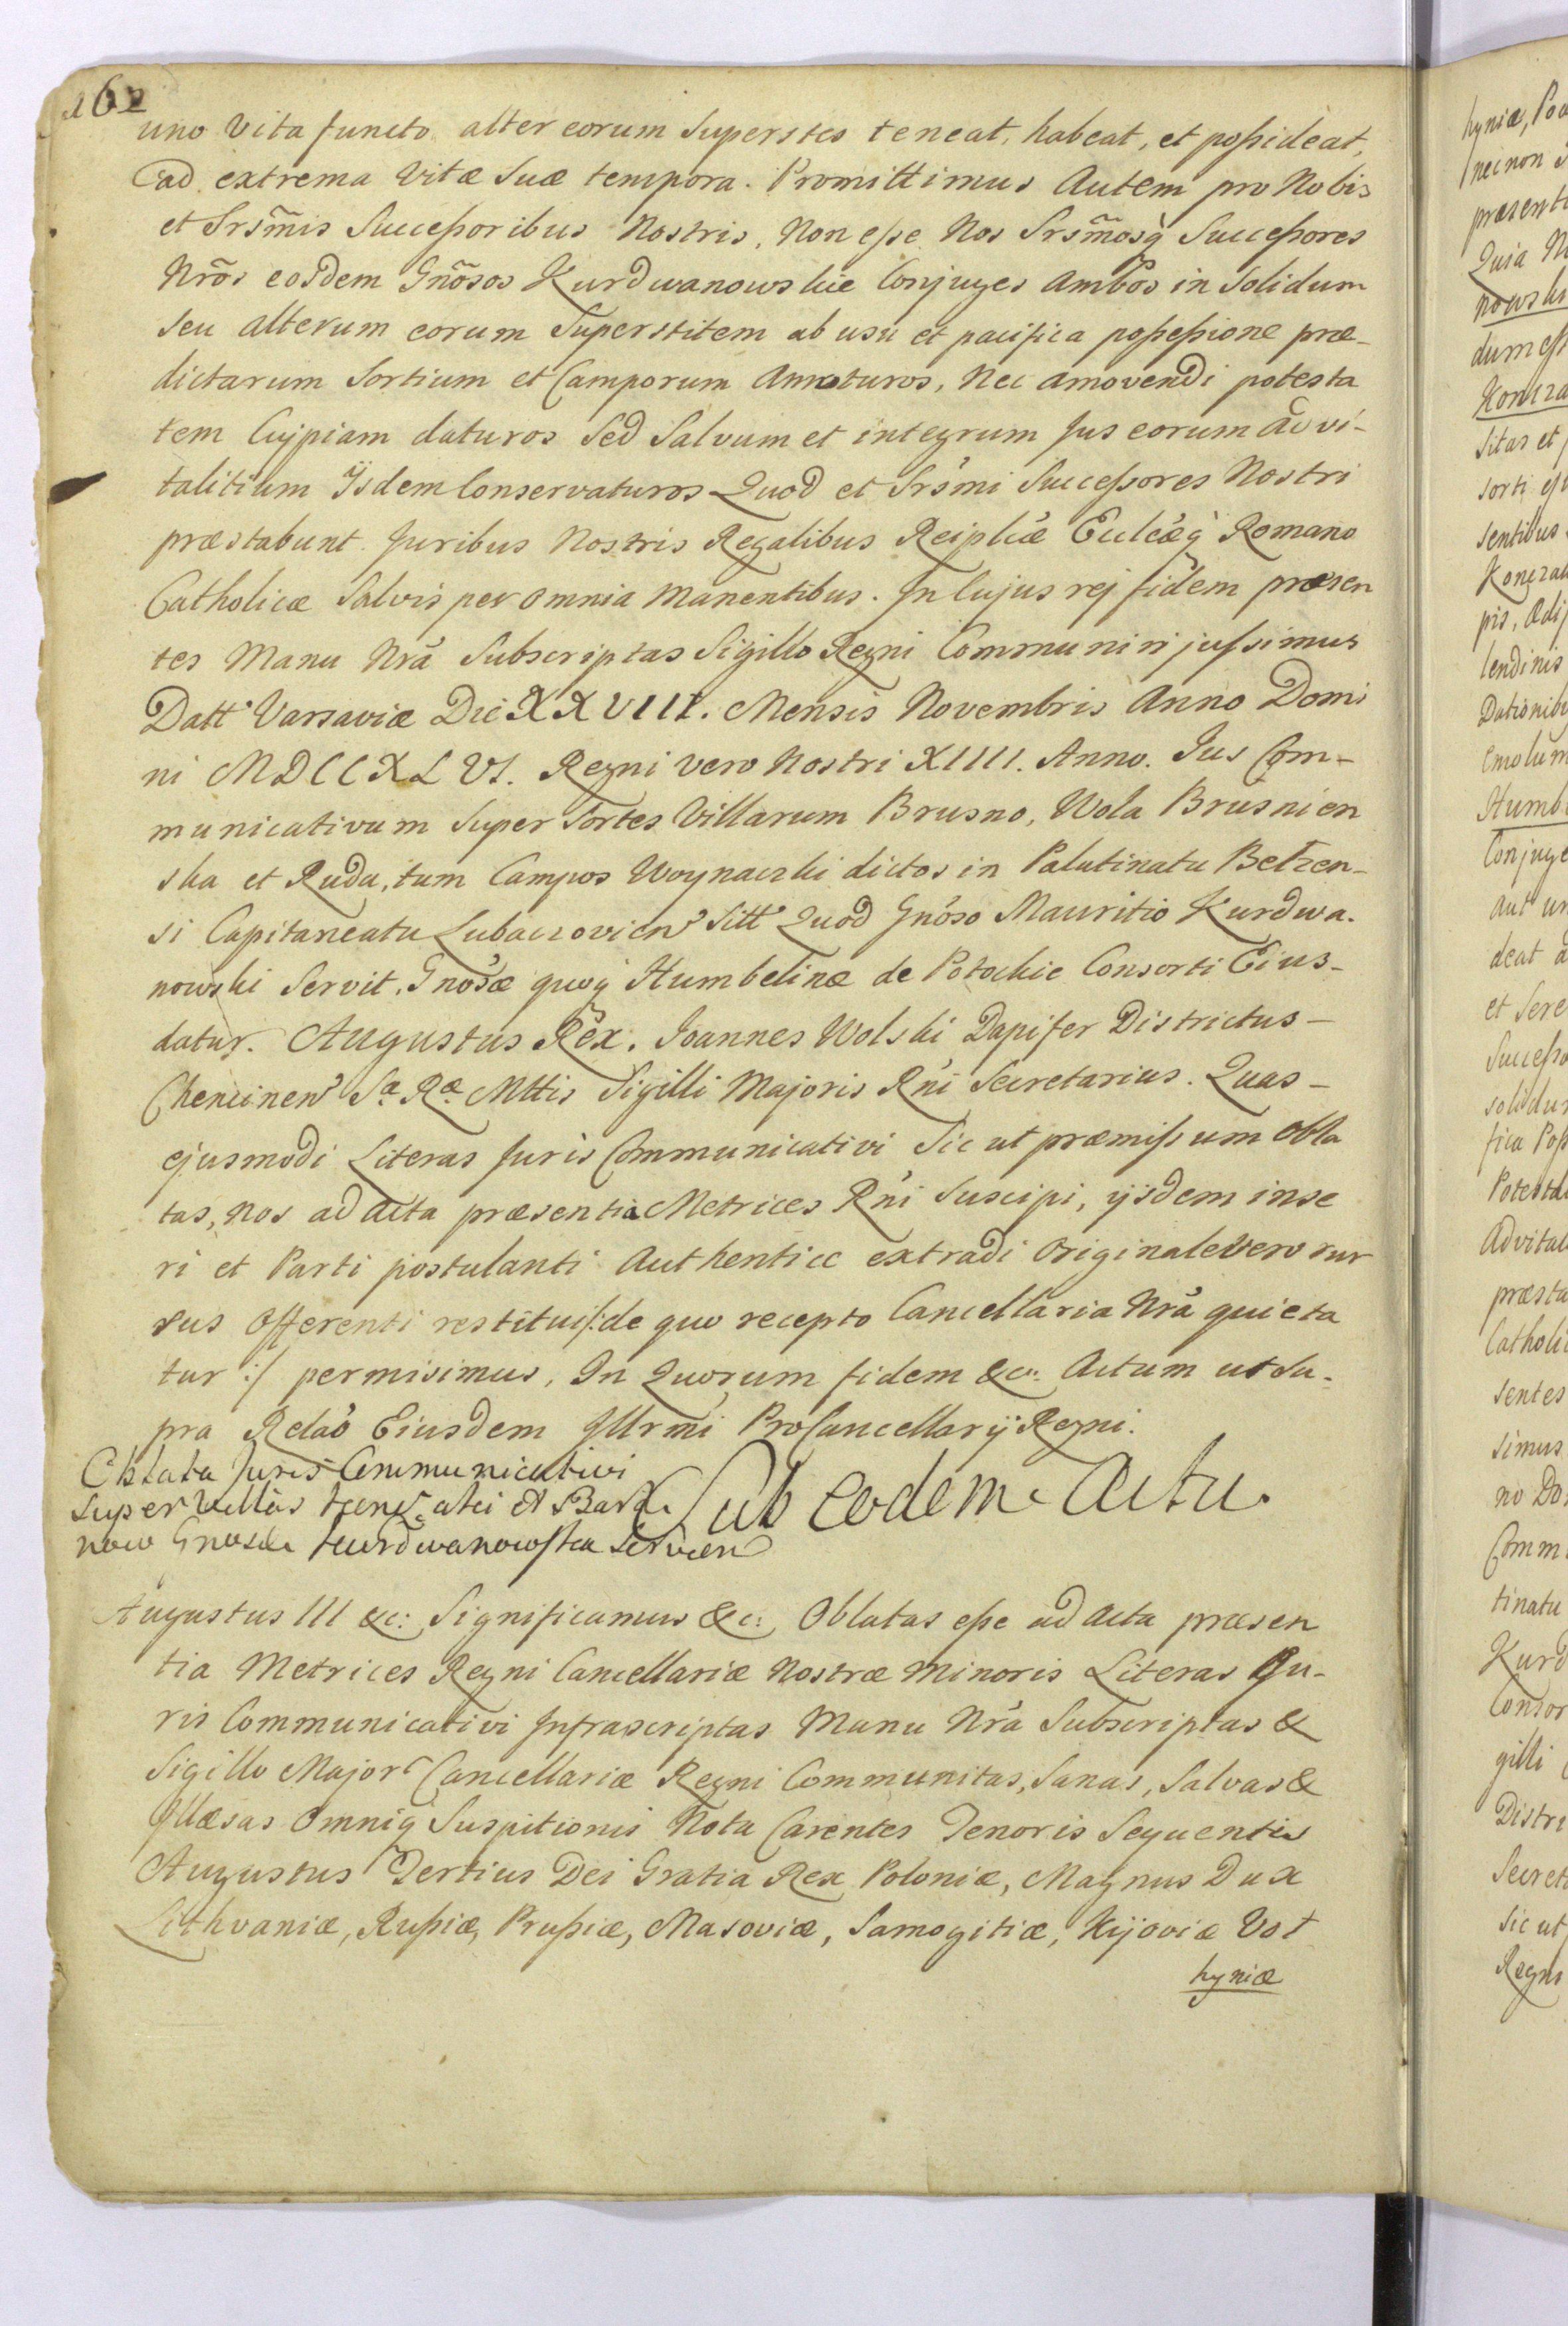 162
uno Vita functo alter eorum Superstes teneat, habeat, et poßideat,
ad extrema Vitæ Suæ tempora. Promittimus Autem pro Nobis
et Srsm̃is Succeßoribus Nostris, Non eße Nos Srsm̃osq̀ Succeßores
Nrõs eosdem Gnõsos Kurdwanowskie Conjuges Ambos in Solidum
seu alterum eorum Superstitem ab usu et pacifica poßeßione præ-
dictarum Sortium et Camporum Amoturos, Nec amovendi potesta
tem Cujpiam daturos Sed Salvum et integrum Jus eorum advi-
talitium Iisdem Conservaturos Quod et Srs'mi Succeßores Nostri
præstabunt. Juribus Nostris Regalibus Reiplicæ Ecclæq̀ Romano
Catholicæ Salvis per omnia manentibus. In Cujus rej fidem præsen
tes Manu Nrã Subscriptas Sigillo Regni Communiri jußimus
Datt' Varsaviæ Die XXVIII. Mensis Novembris Anno Domi
ni MDCCXLVI. Regni vero Nostri XIIII. Anno. Jus Com-
municativum Super Sortes Villarum Brusno, Wola Brusnien
ska et Ruda, tum Campos Woynaczki dictos in Palatinatu Belzen-
si Capitaneatu Lubaczovien' Sitt' Quod Gnõso Mauritio Kurdwa-
nowski Servit. Gnosæ quoq̀ Humbelinæ de Potockie Consorti Eius-
datur. Augustus Rex. Joannes Wolski Dapifer Districtus-
Chencinen' Sæ Ræ Mttis Sigilli Majoris R'ni Secretarius. Quas-
ejusmodi Literas Juris Communicativi Sic ut præmißum obla
tas, nos ad acta præsentia Metrices R'ni Suscipi, ijsdem inse
ri et Parti postulanti Authentice extradi originale vero rur
sus Offerenti restitui /: de quo recepto Cancellaria Nrã quieta
tur :/ permisimus, In Quorum fidem &c. Actum ut Su-
pra Relaõ Eiusdem Illrmi ProCancellarij Regni.
Oblata Juris Communicativi
super Villas Honczatei et Bar
now Gnosæ Kurdwanowska Servien
Sub eodem Actu.
Augustus III &c: Significamus &c: Oblatas eße ad acta præsen
tia Metrices Regni Cancellariæ Nostræ Minoris Literas Ju-
ris Communicativi Infrascriptas Manu Nrã Subscriptas &
Sigillo Major Cancellariæ Regni Communitas, Sanas, Salvas &
Illæsas Omniq̀ Suspitionis Nota Carentes Tenoris Sequentis
Augustus Tertius Dei Gratia Rex Poloniæ, Magnus Dux
Lithvaniæ, Rußiæ, Prußiæ, Masoviæ, Samogitiæ, Kijoviæ Vol
hyniæ